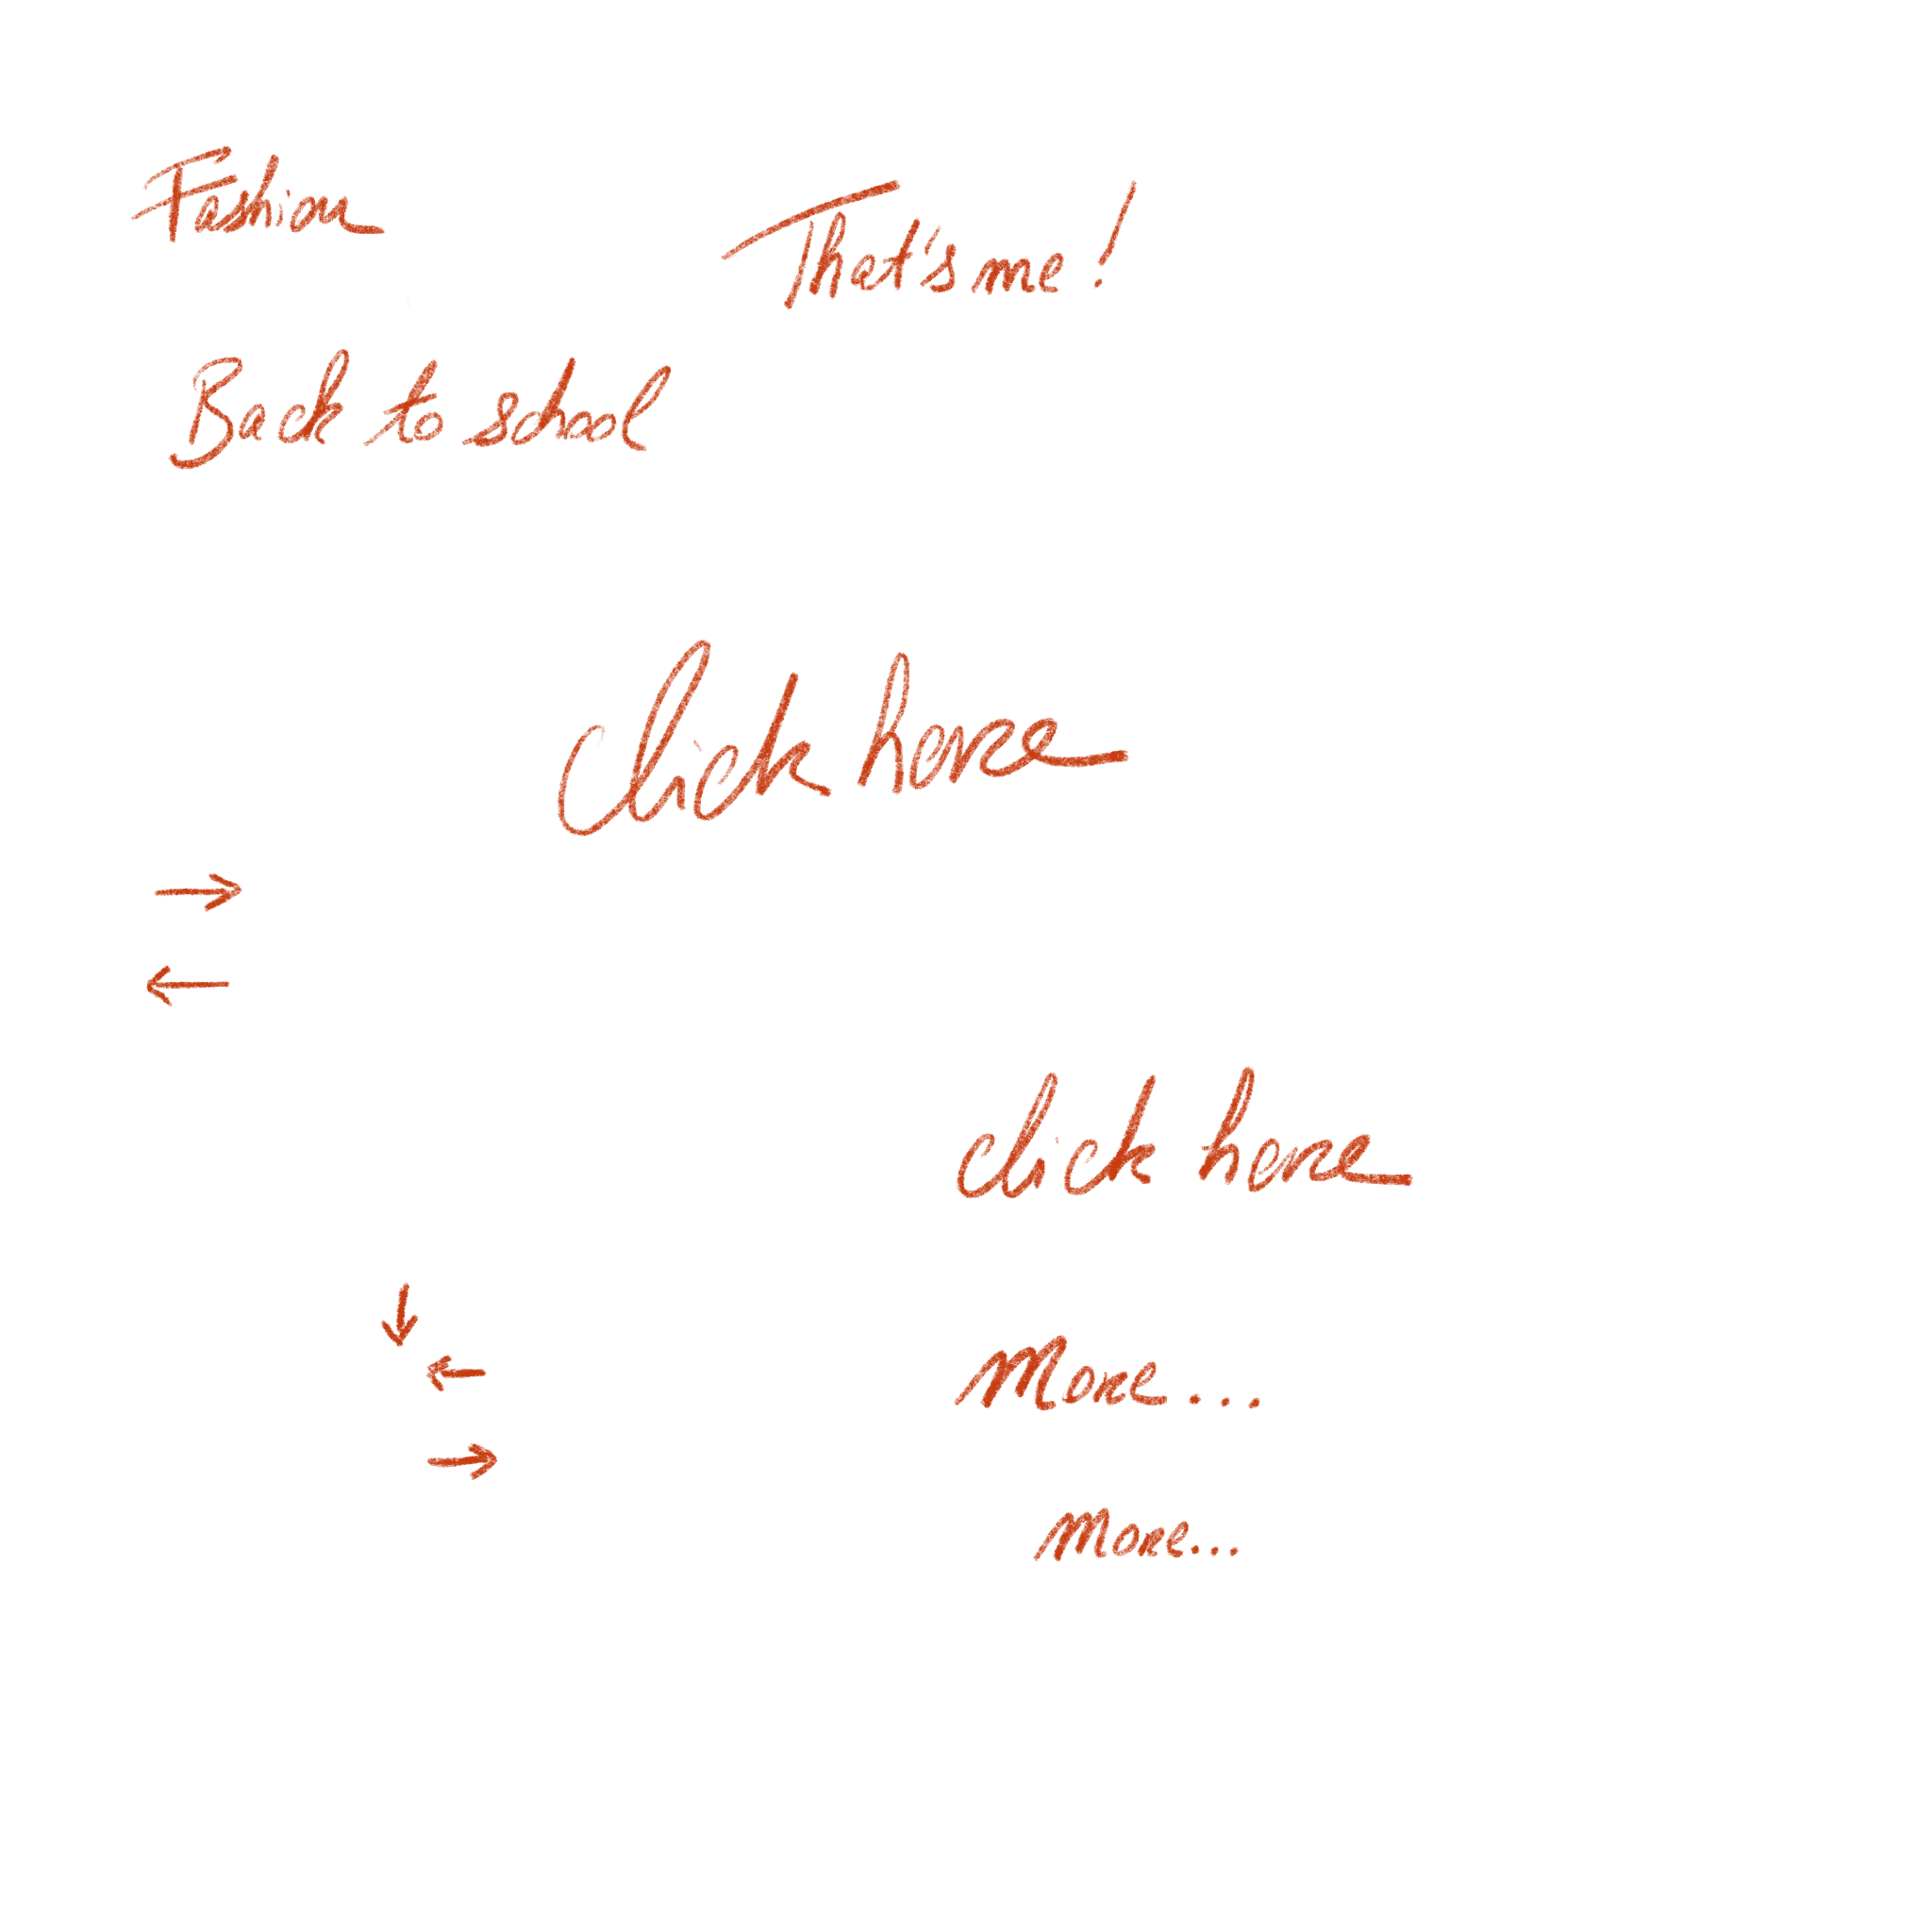 Fashion
That's me!
Back to school
Click here
→
←
click here
↓
←
More...
→
More...